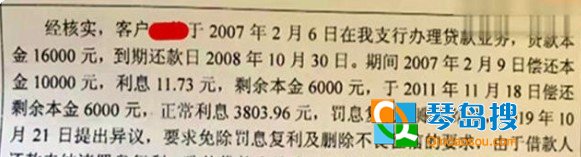 经核实，客户 于 2007 年 2 月 6 日在我支行办理贷款业务，贷款本
金 16000 元，到期还款日 2008 年 10 月 30 日。期间 2007 年 2 月 9 日偿还本
金 10000 元，利息 11.73 元，剩余本金 6000 元，于 2011 年 11 月 18 日偿还
剩余本金 6000 元，正常利息 3803.96 元，罚息复利
19 年 10
月 21 日提出异议，要求免除罚息复利及删除不良
借款人
琴岛搜